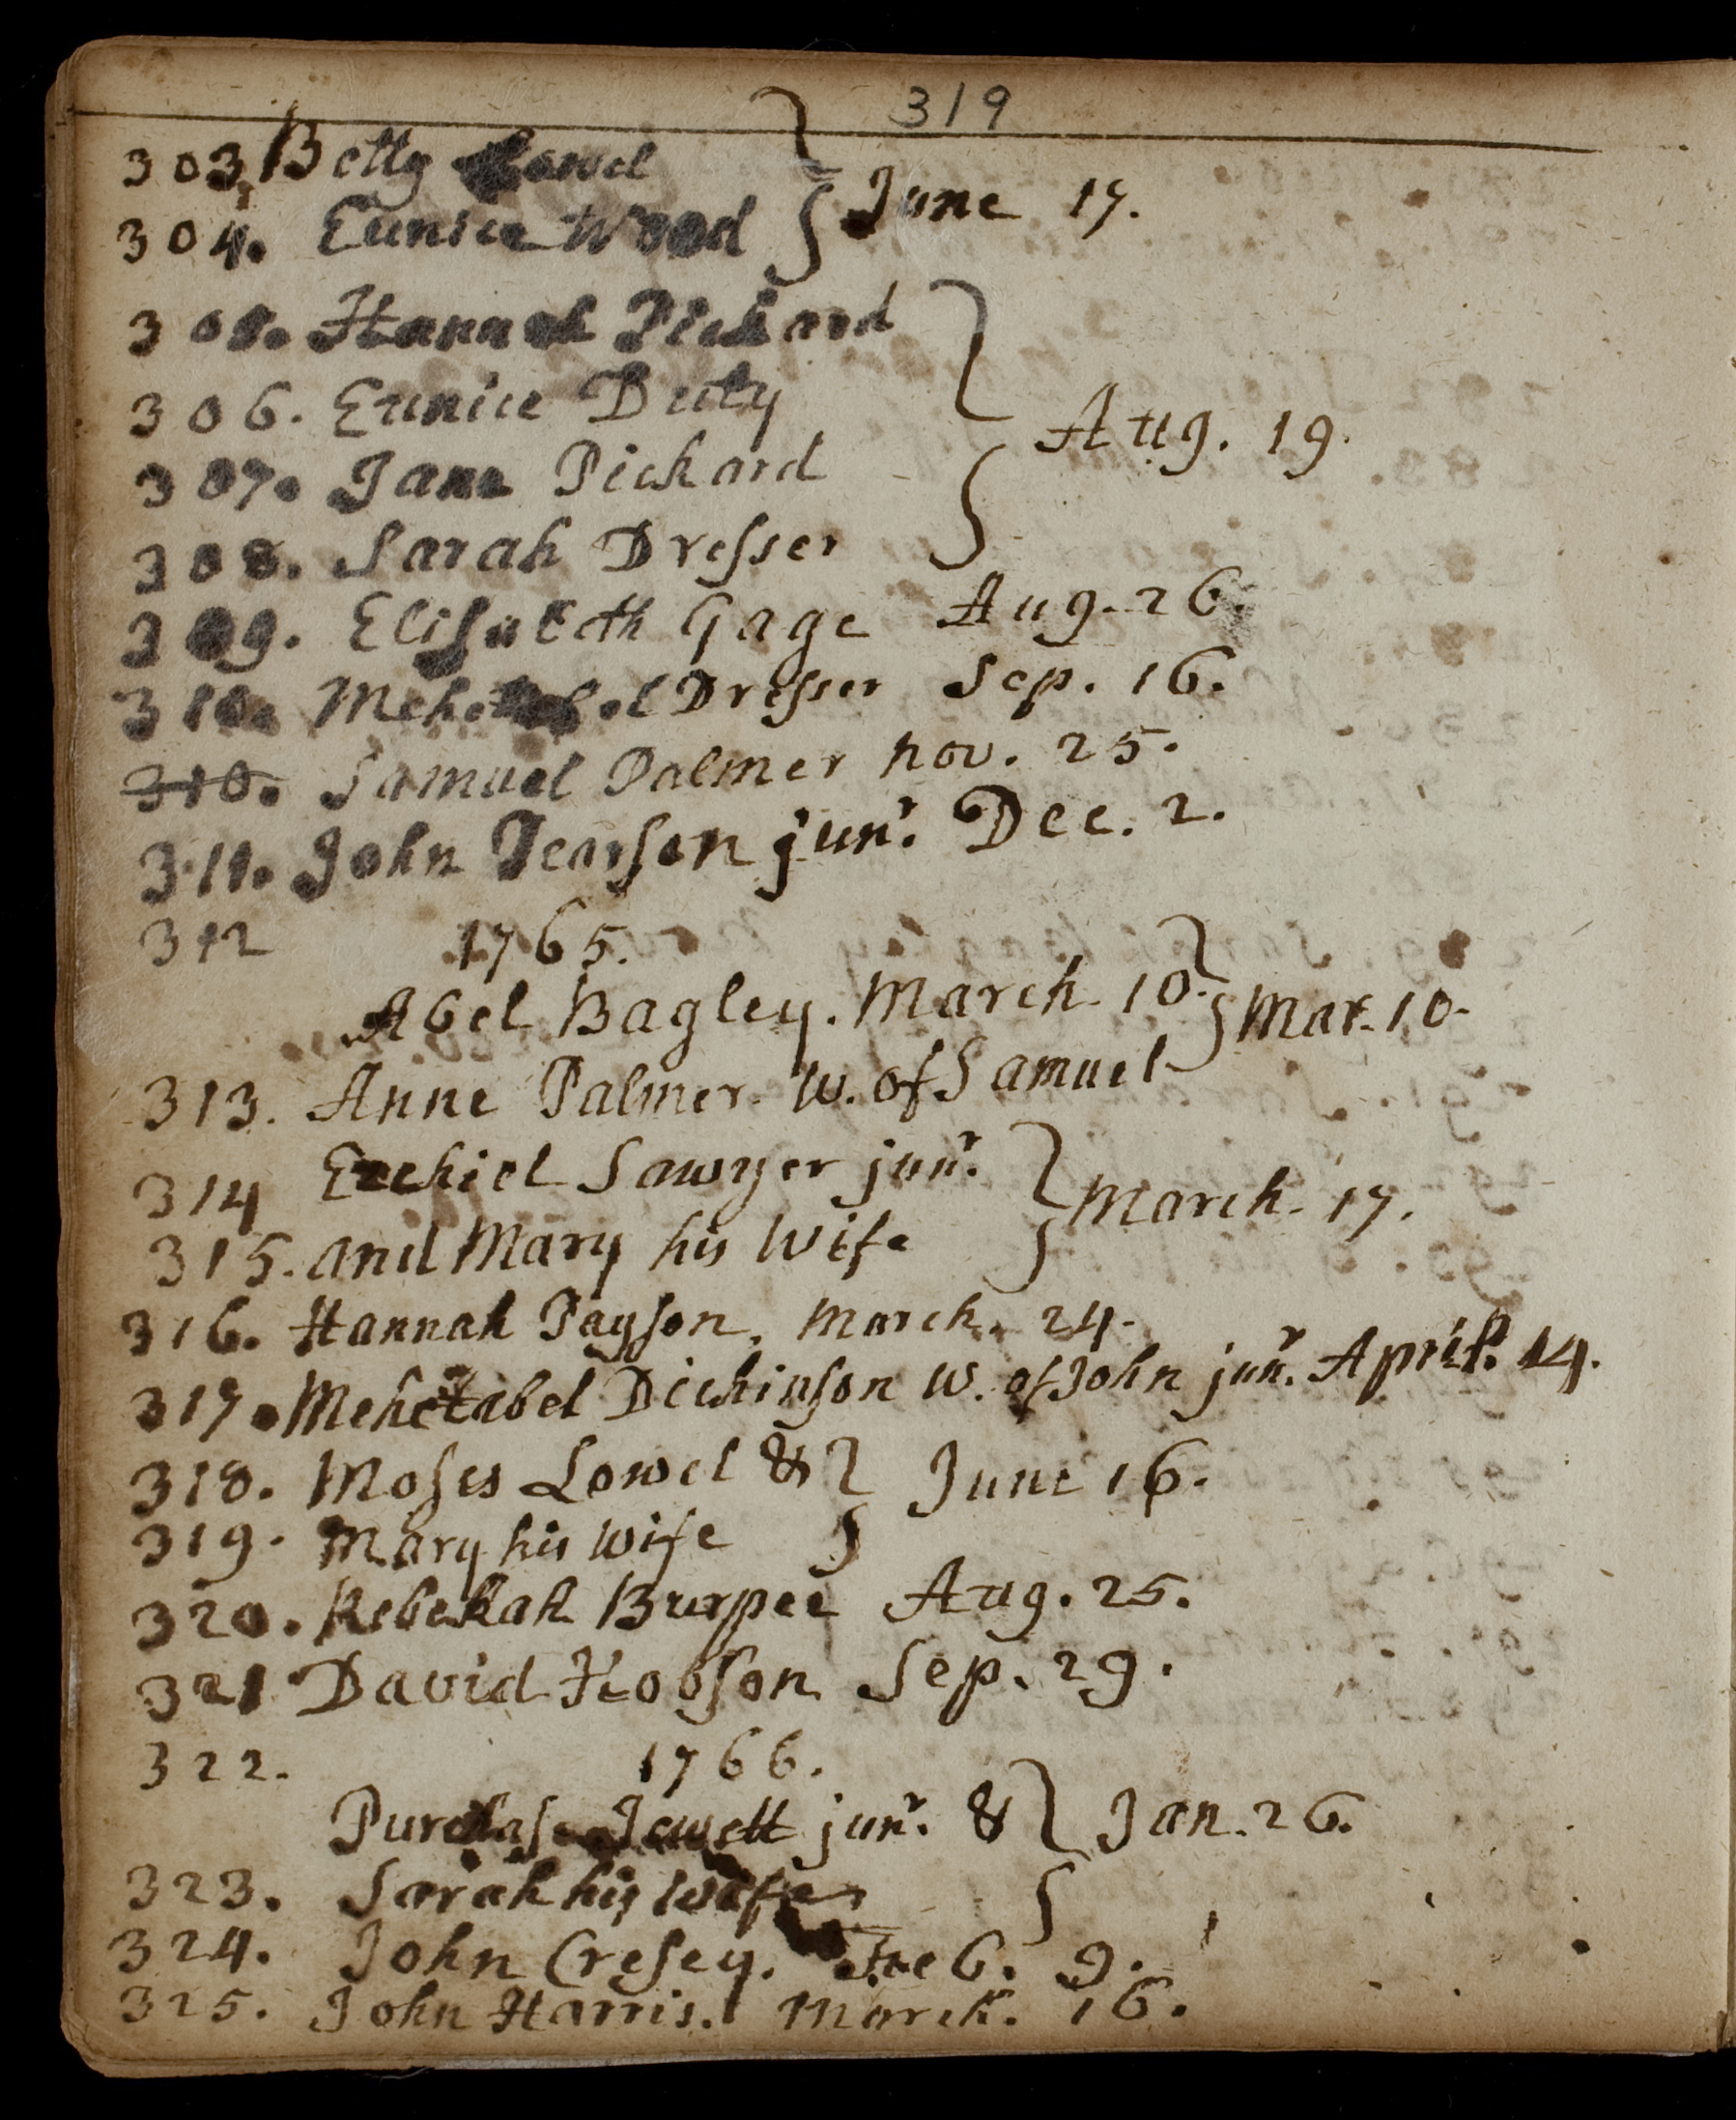 319
303, Betty Lowel
304. Eunice Wood } June 17.
305. Hannah Pickard
306. Eunice Duty
307. Jane Pickard } Aug. 19.
308. Sarah Dresser
309. Elisabeth Gage Aug. 26.
310. Mehetabel Dresser Sep. 16.
310. Samuel Palmer nov. 25.
311. John Pearson junr. Dec. 2.
312 1765.
Abel Bagley. March. 10. } Mar. 10.
313. Anne Palmer. W. of Samuel
314 Ezekiel Sawyer junr.
315. and Mary his Wife } March. 17.
316. Hannah Payson. March. 24.
317. Mehetabel Dickinson W. of John junr. April. 14.
318. Moses Lowel & } June 16.
319. Mary his Wife
320. Rebekah Burpee Aug. 25.
321 David Hobson Sep. 29.
322. 1766.
Purchase Jewett junr. & } Jan. 26.
323. Sarah his Wife
324. John Cresey. Feb. 9.
325. John Harris. March. 16.